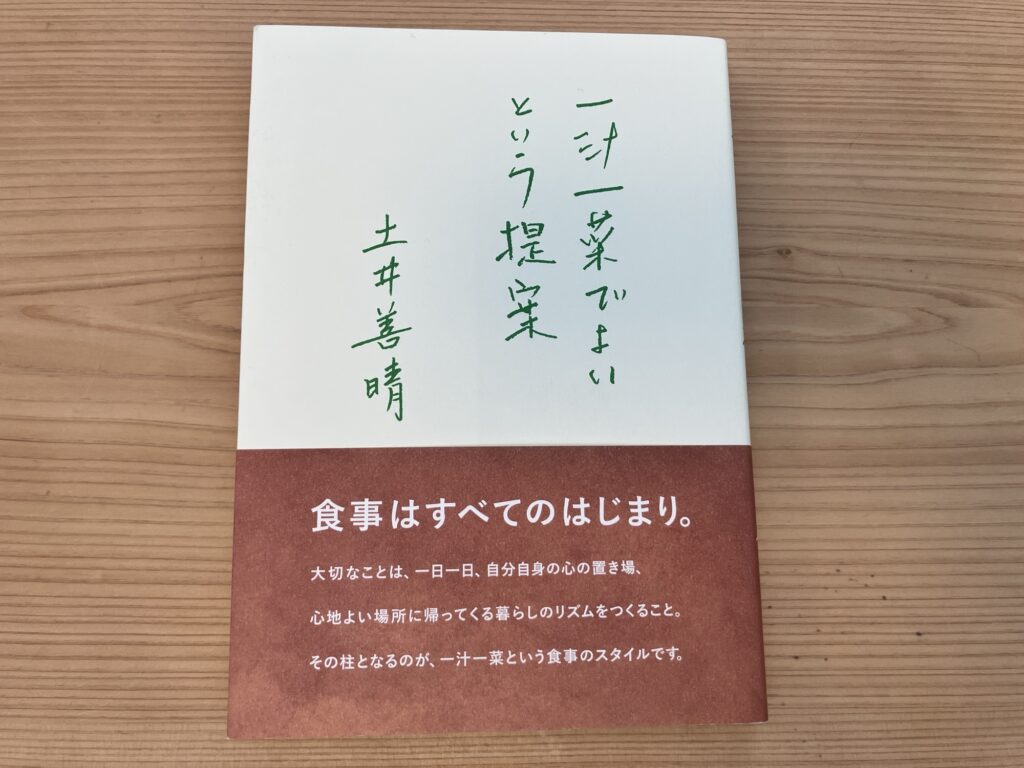 一汁一菜でよい
という提案
土井善晴
食事はすべてのはじまり。
大切なことは、一日一日、自分自身の心の置き場、
心地よい場所に帰ってくる暮らしのリズムをつくること。
その柱となるのが、一汁一菜という食事のスタイルです。